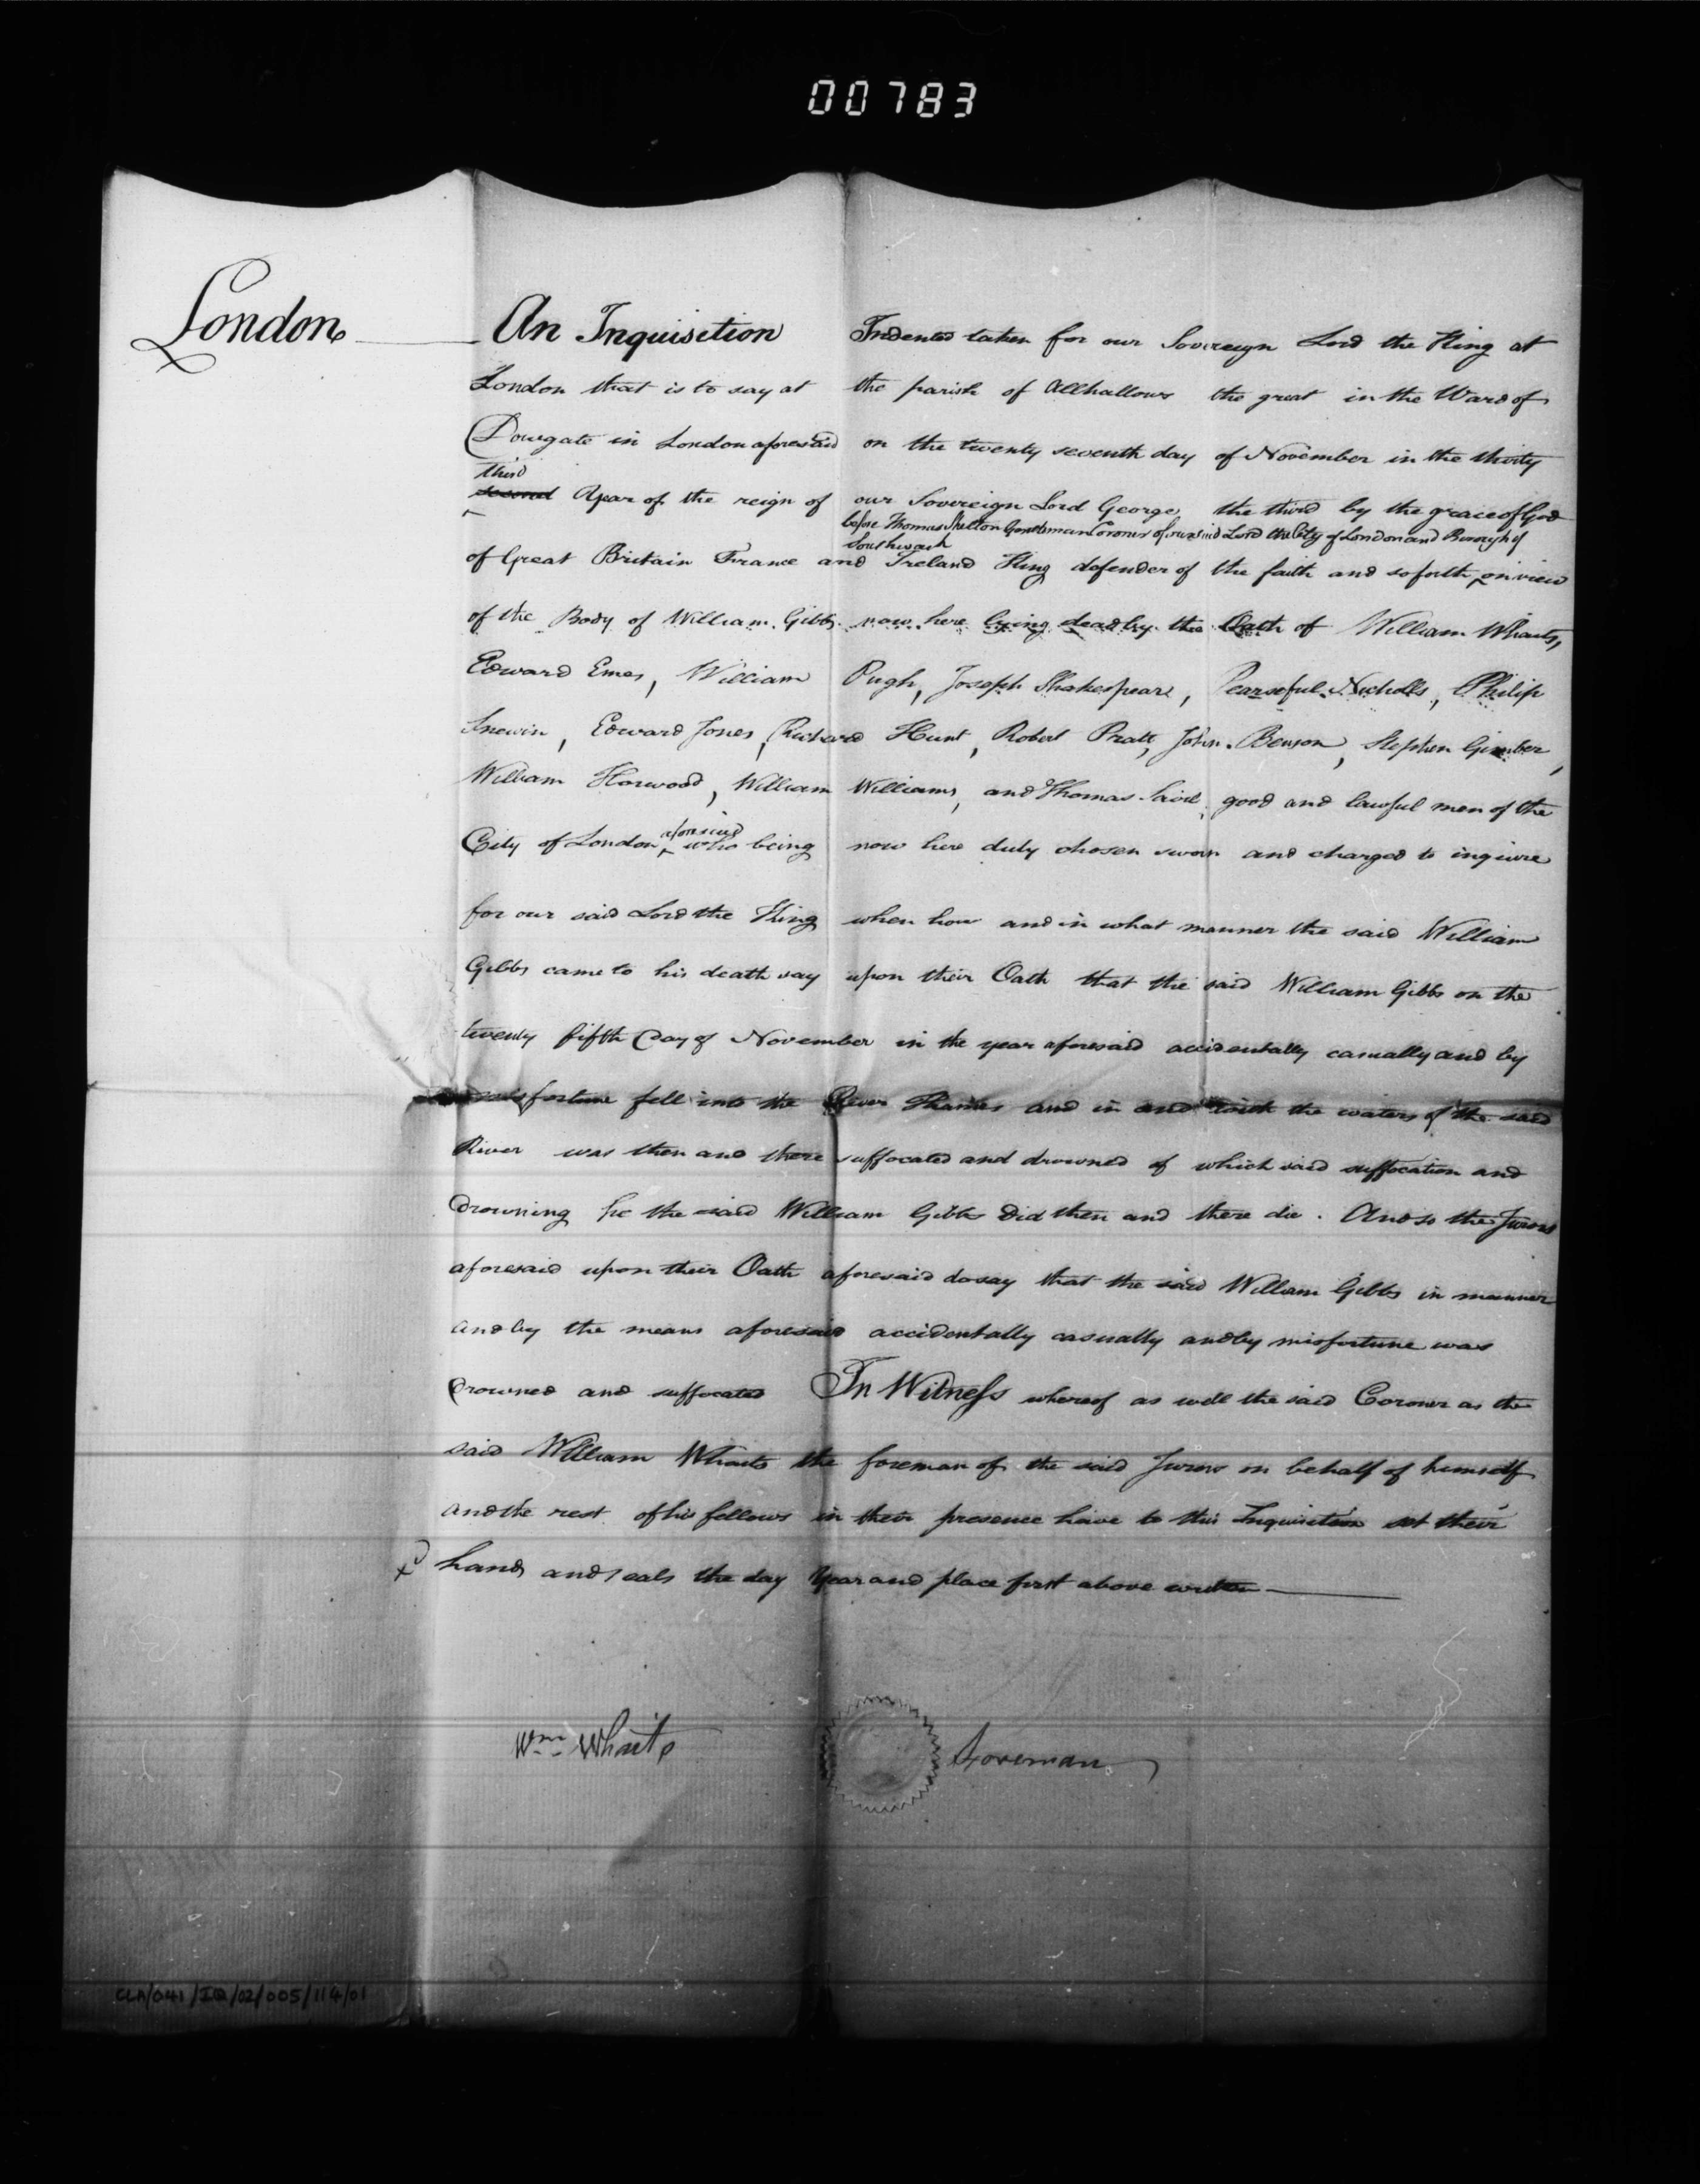 00783
London An Inquisition Indented taken for our Sovereign Lord the King at
London that is to say at the parish of Allhallows the great in the Ward of
Dowgate in London aforesaid on the twenty seventh day of November in the thirty
third
second Year of the reign of our Sovereign Lord George the third by the grace of God
before Thomas Shelton Gentleman Coroner of our said Lord the City of London and Borough of
Southwark
of Great Britain France and Ireland King defender of the faith and so forth on view
of the Body of William Gibbs now here lying dead by the Oath of William Whaits,
Edward Emes, William Pugh, Joseph Shakespear, Nicholls, Philip
Snewin, Edward Jones, Richard Hunt, Robert Pratt, John Benson, Stephen Gimber,
William Horwood, William Williams, and Thomas good and lawful men of the
aforesaid
City of London who being now here duly chosen sworn and charged to inquire
for our said Lord the King when how and in what manner the said William
Gibbs came to his death say upon their Oath that the said William Gibbs on the
twenty fifth Day of November in the year aforesaid accidentally casually and by
misfortune fell into the River Thames and in and with the waters of the said
River was then and there suffocated and drowned of which said suffocation and
drowning he the said William Gibbs did then and there die. And so the Jurors
aforesaid upon their Oath aforesaid do say that the said William Gibbs in manner
and by the means aforesaid accidentally casually and by misfortune was
Drowned and suffocated In Witness whereof as well the said Coroner as the
said William Whaits the foreman of the said Jurors on behalf of himself
and the rest of his fellows in their presence have to this Inquisition set their
hands and seals the day Year and place first above written
Wm Whaits Foreman
CLA/041/IQ/02/005/114/01